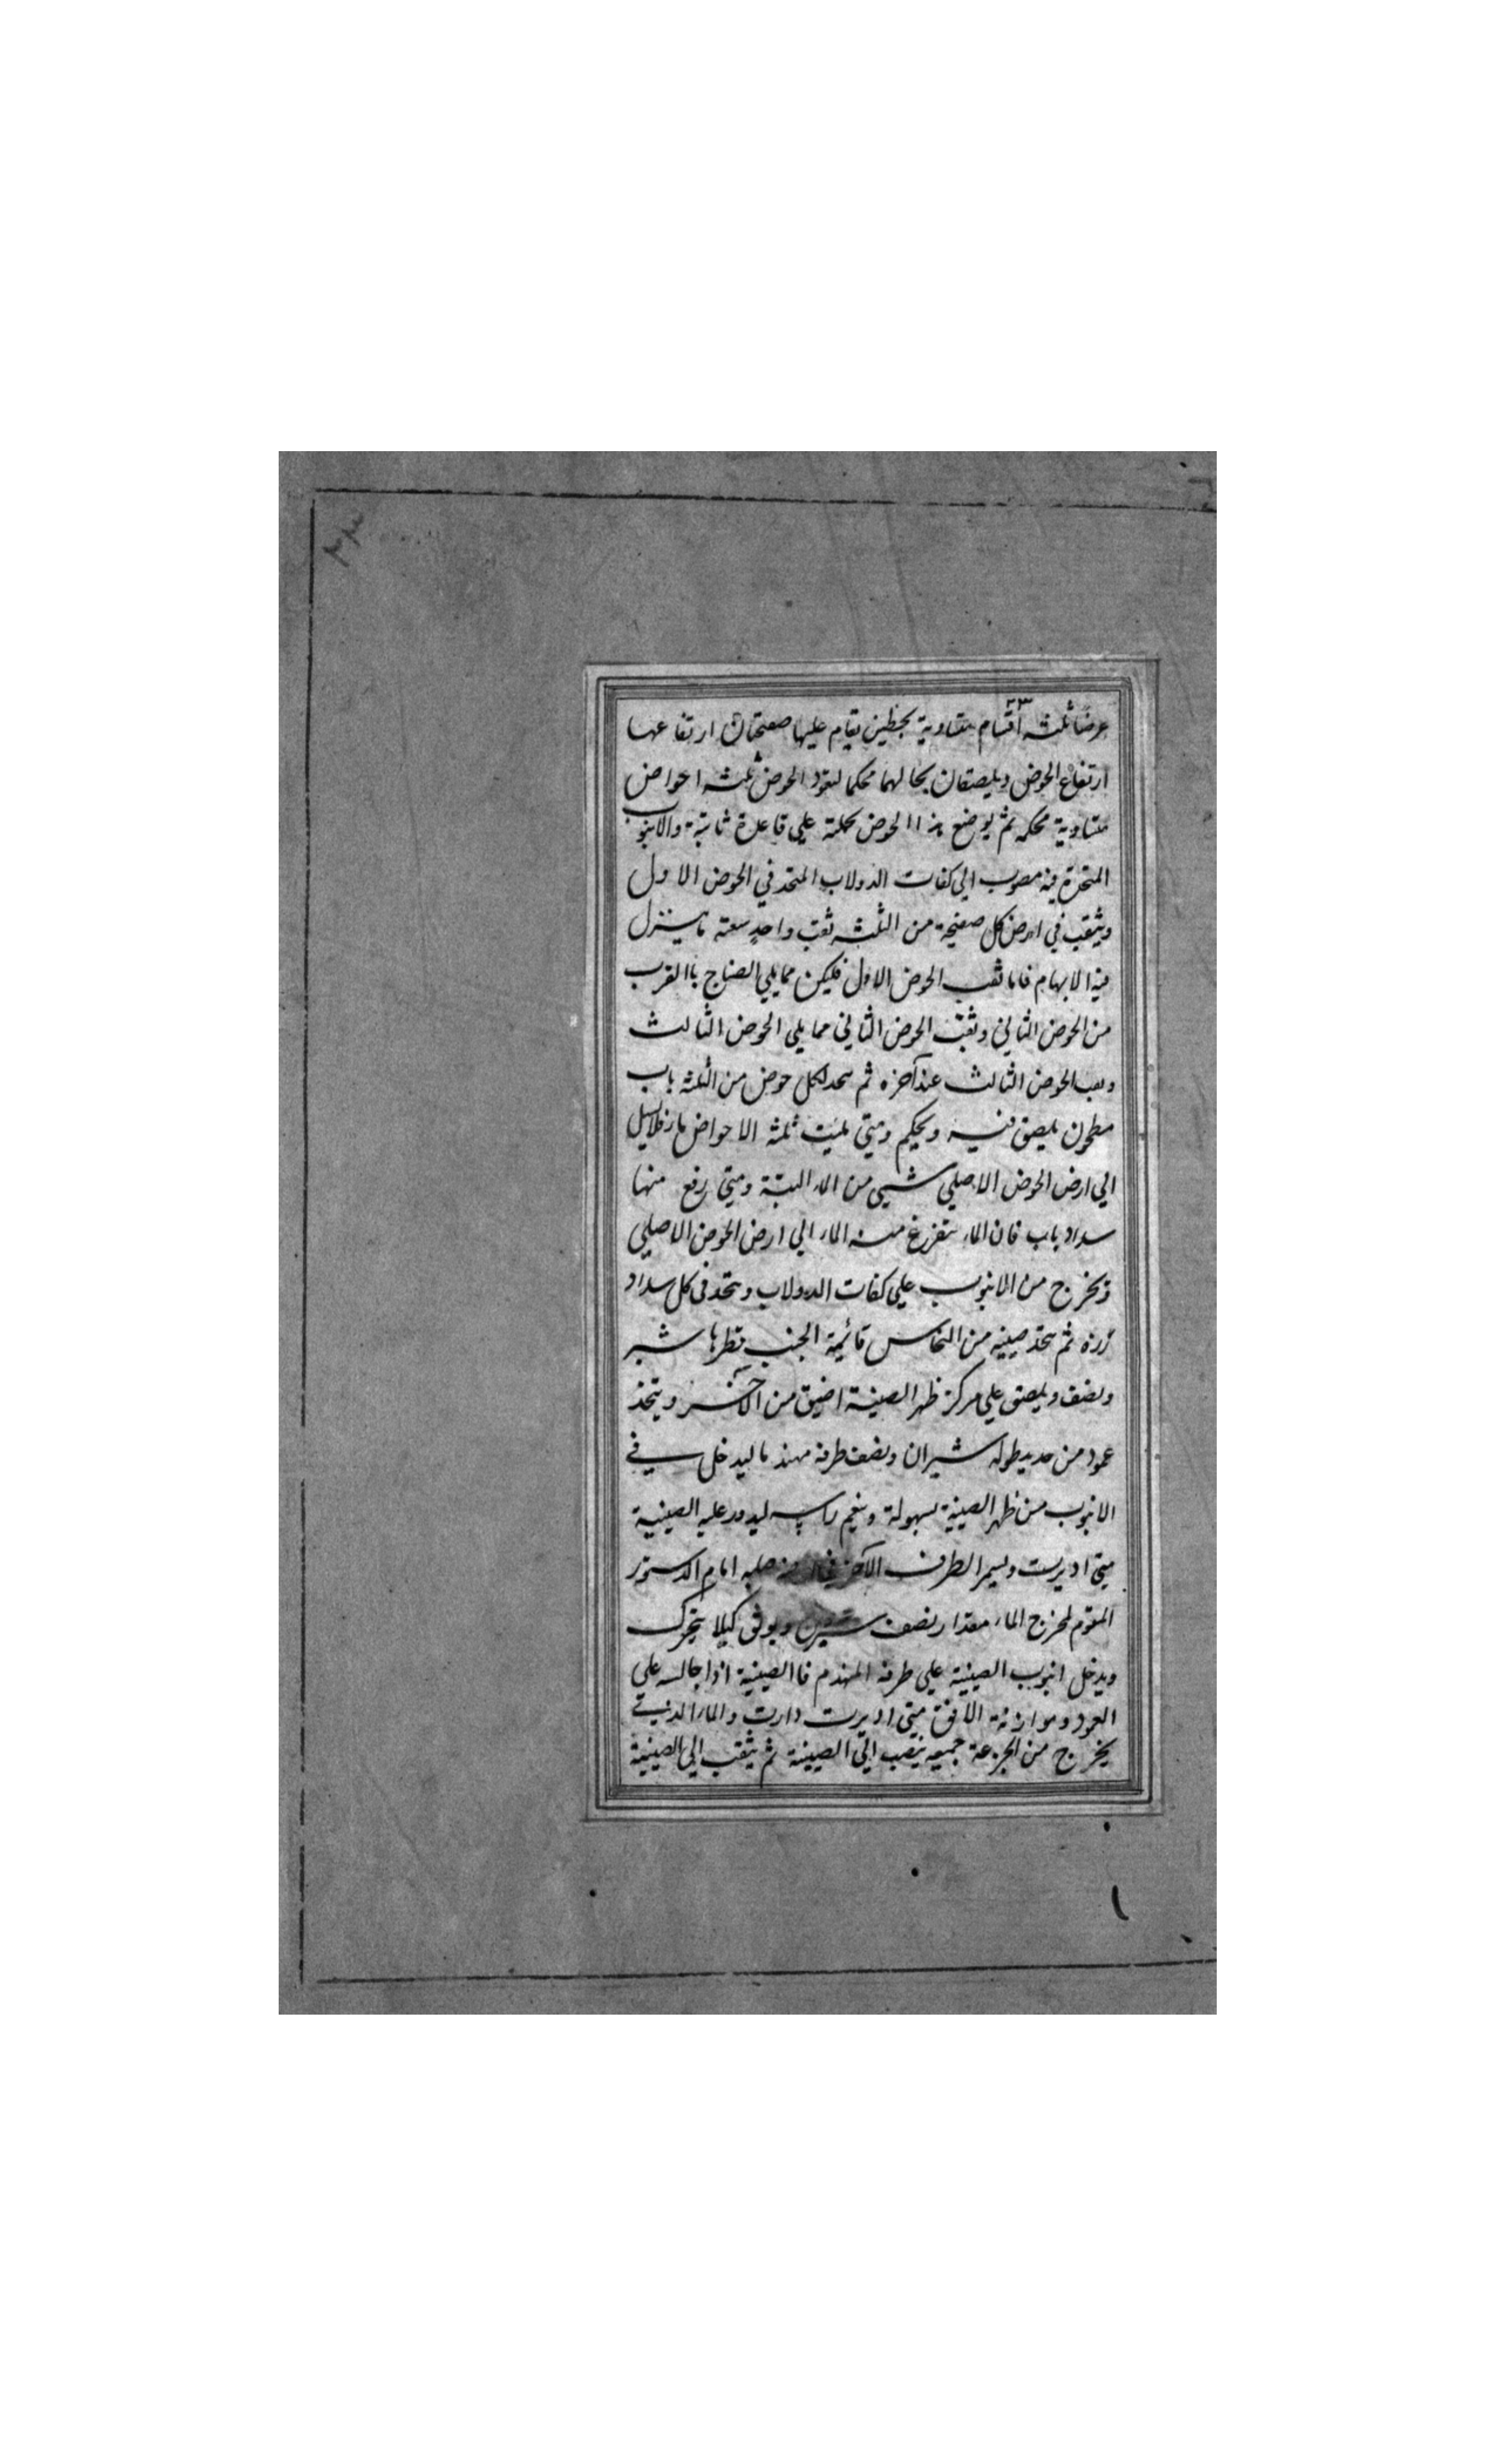 عرضا ثلثه اقسام متساوية بخطين يقام عليها صفحتان ارتفاعها
ارتفاع الحوض ويلصقان بحالهما محكما ليعود الحوض ثلثه احواض
متساوية محكمه ثم يوضع هذا الحوض بجملته علي قاعدة ثابتة والانبوب
المتخذة فيه مصوب الي كفات الدولاب المتخذ في الحوض الاول
ويثقب في ارض كل صفيحة من الثلثه ثقب واحد سعته ما ينزل
فيه الابهام فاما ثقب الحوض الاول فليكن مما يلي الصناج باالقرب
من الحوض الثاني وثقب الحوض الثاني مما يلي الحوض الثالث
وثقب الحوض الثالث عند آخره ثم يتخذ لكل حوض من الثلثه باب
مطحون يلصق فيه ويحكم ومتي مليت ثلثه الاحواض ماء فلا يسيل
الي ارض الحوض الاصلي شيي من الماء البتة ومتي رفع منها
سداد باب فان الماء يتفرغ منه الماء الي ارض الحوض الاصلي
ويخرج من الانبوب علي كفات الدولاب ويتخذ في كل سداد
زرة ثم يتخذ صينيه من النحاس قائمة الجنب قطرها شبر
ونصف ويلصق علي مركز ظهر الصينية اضيق من الآخر ويتخذ
عمود من حديد طوله شبران ونصف طرفه مهندما ليدخل في
الانبوب من ظهر الصينية بسهولة وينعم راسه ليدور عليه الصينية
متي اديرت ويسمر الطرف الآخر في صلبه امام الدستور
المقوم لمخرج الماء مقدار نصف شبرين ويوثق كيلا يتحرك
ويدخل انبوب الصينية علي طرفه المهندم فاالصينية اذا جالسه علي
العمود وموازنة الافق متي اديرت دارت والماء الذي
يخرج من الجزعة جميعه ينصب الي الصينية ثم يثقب الي الصينية